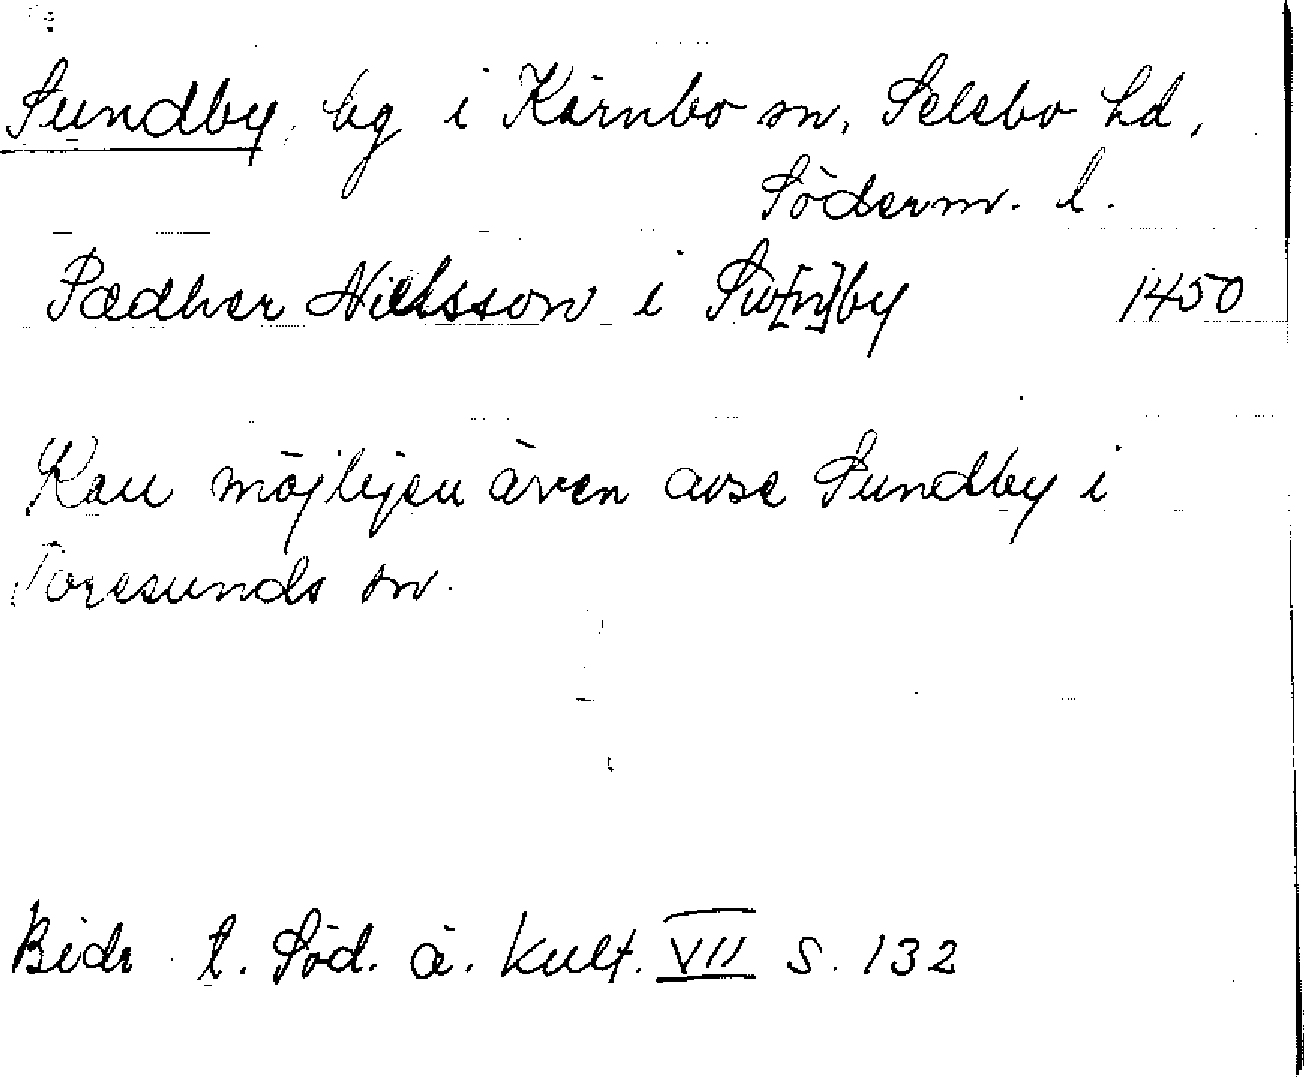 Sundby, bg i Kärnbo sn, Selebo hd,
Söderm. l.
Pædher Nielsson i Sw[n]by 1450
Kan möjligen även avse Sundby i
Toresunds sn.
Bidr t. Söd. ä. kult. VII s. 132